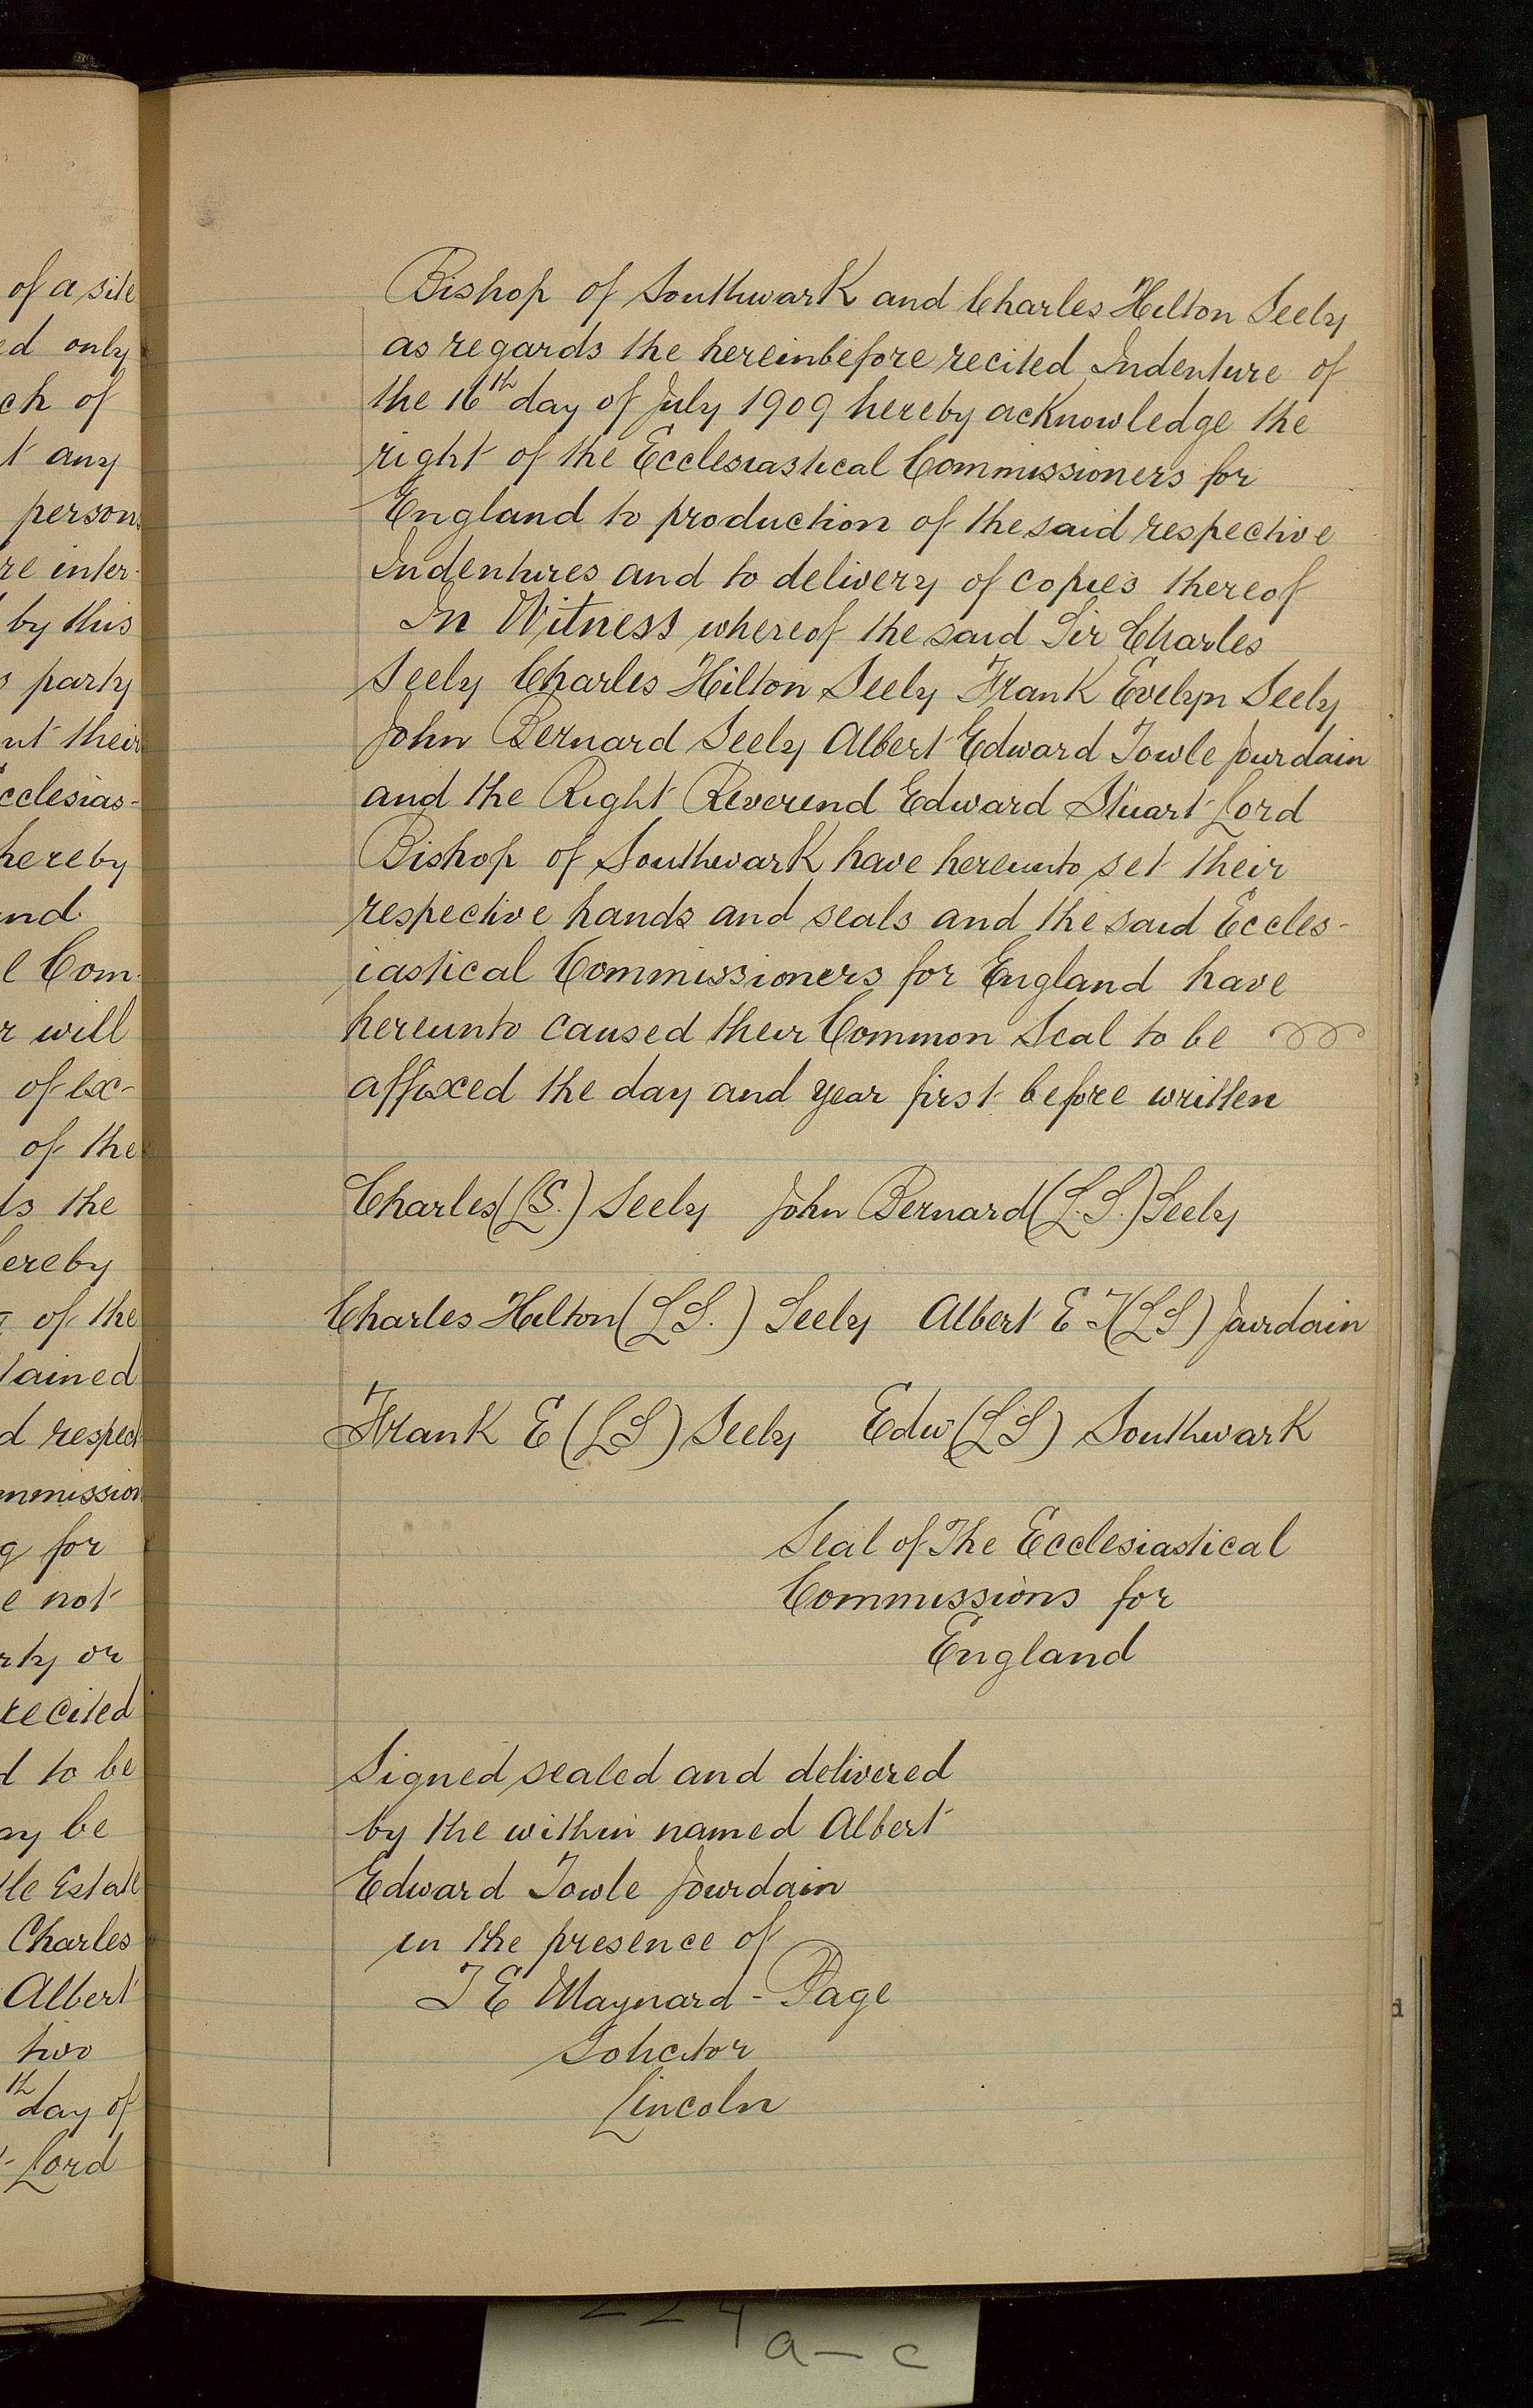 of a site
ed only
ch of
t any
persons
re inter-
by this
s party
nt their
cclesias-
hereby
nd
l Com-
r will
of Ex-
of the
ts the
ereby
g of the
tained
d respect
mmission
g for
e not
rty or
recited
d to be
ay be
tle Estate
Charles
Albert
two
th day of
- Lord
Bishop of Southwark and Charles Hilton Seely
as regards the hereinbefore recited Indenture of
the 16th day of July 1909 hereby acknowledge the
right of the Ecclesiastical Commissioners for
England to production of the said respective
Indentures and to delivery of copies thereof
In Witness whereof the said Sir Charles
Seely Charles Hilton Seely Frank Evelyn Seely
John Bernard Seely Albert Edward Towle Jourdain
and the Right Reverend Edward Stuart Lord
Bishop of Southwark have hereunto set their
respective hands and seals and the said Eccles-
iastical Commissioners for England have
hereunto caused their Common Seal to be
affixed the day and year first before written
Charles (L.S.) Seely John Bernard (L.S.) Seely
Charles Hilton (L S.) Seely Albert E T (L S) Jourdain
Frank E (L S) Seely Edw (L S) Southwark
Seal of The Ecclesiastical
Commissions for
England
Signed sealed and delivered
by the within named Albert
Edward Towle Jourdain
in the presence of
T E Maynard-Page
Solicitor
Lincoln
d
224
a-c